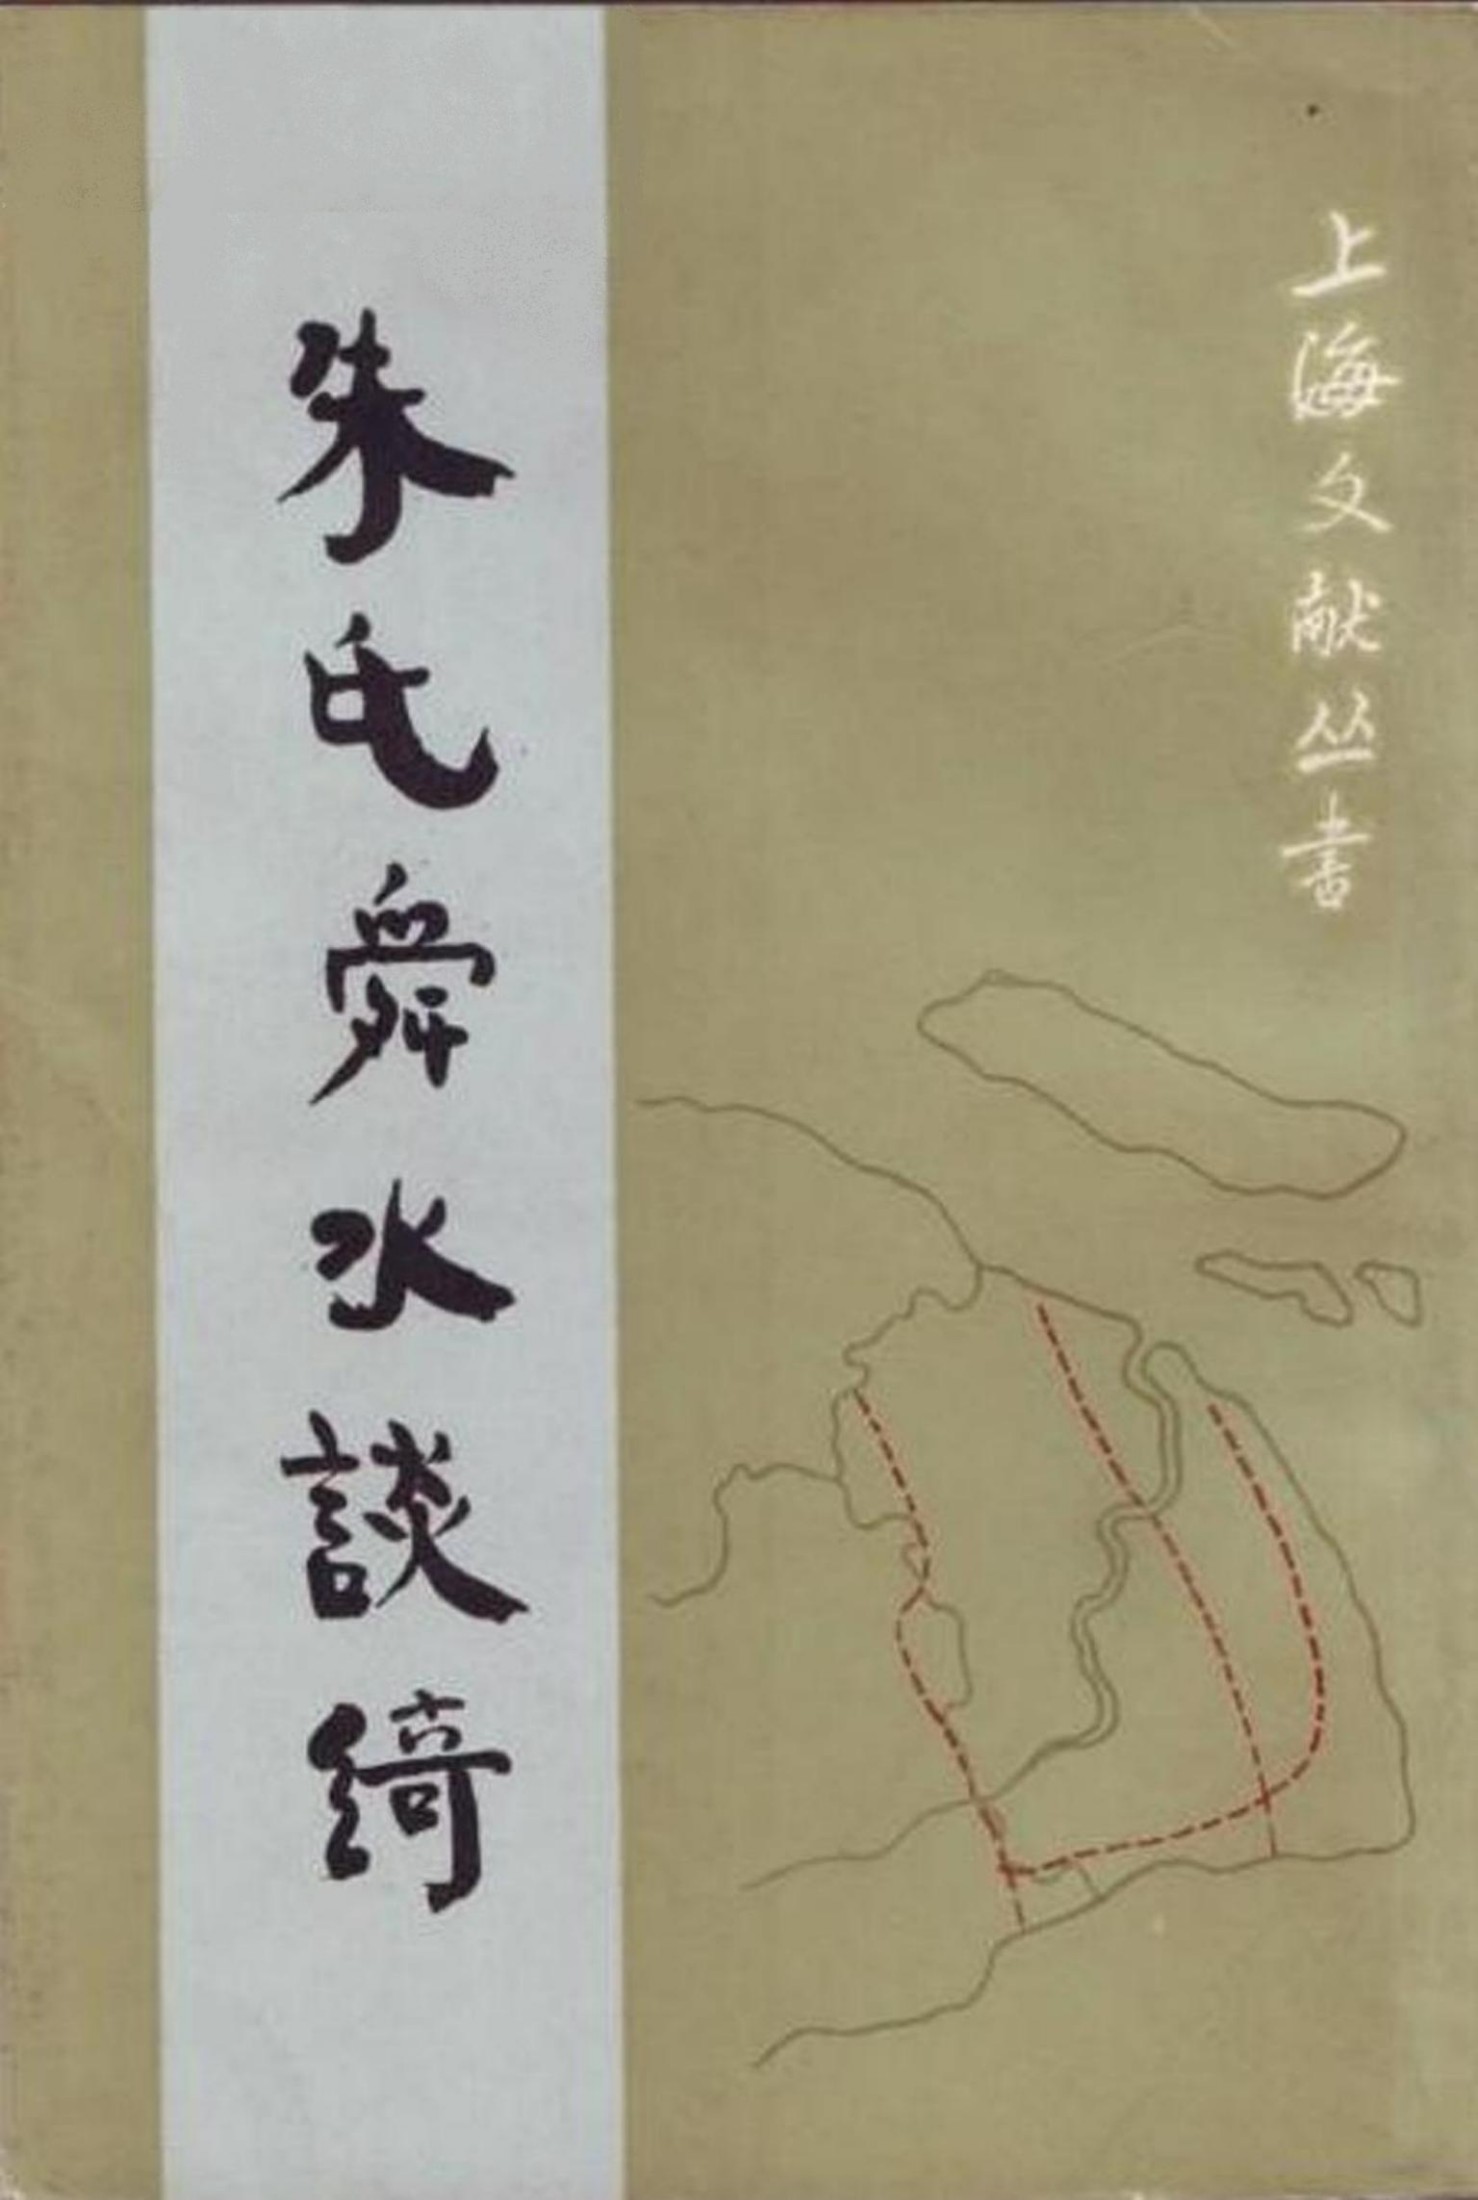 上海文献丛書
朱氏舜水談綺